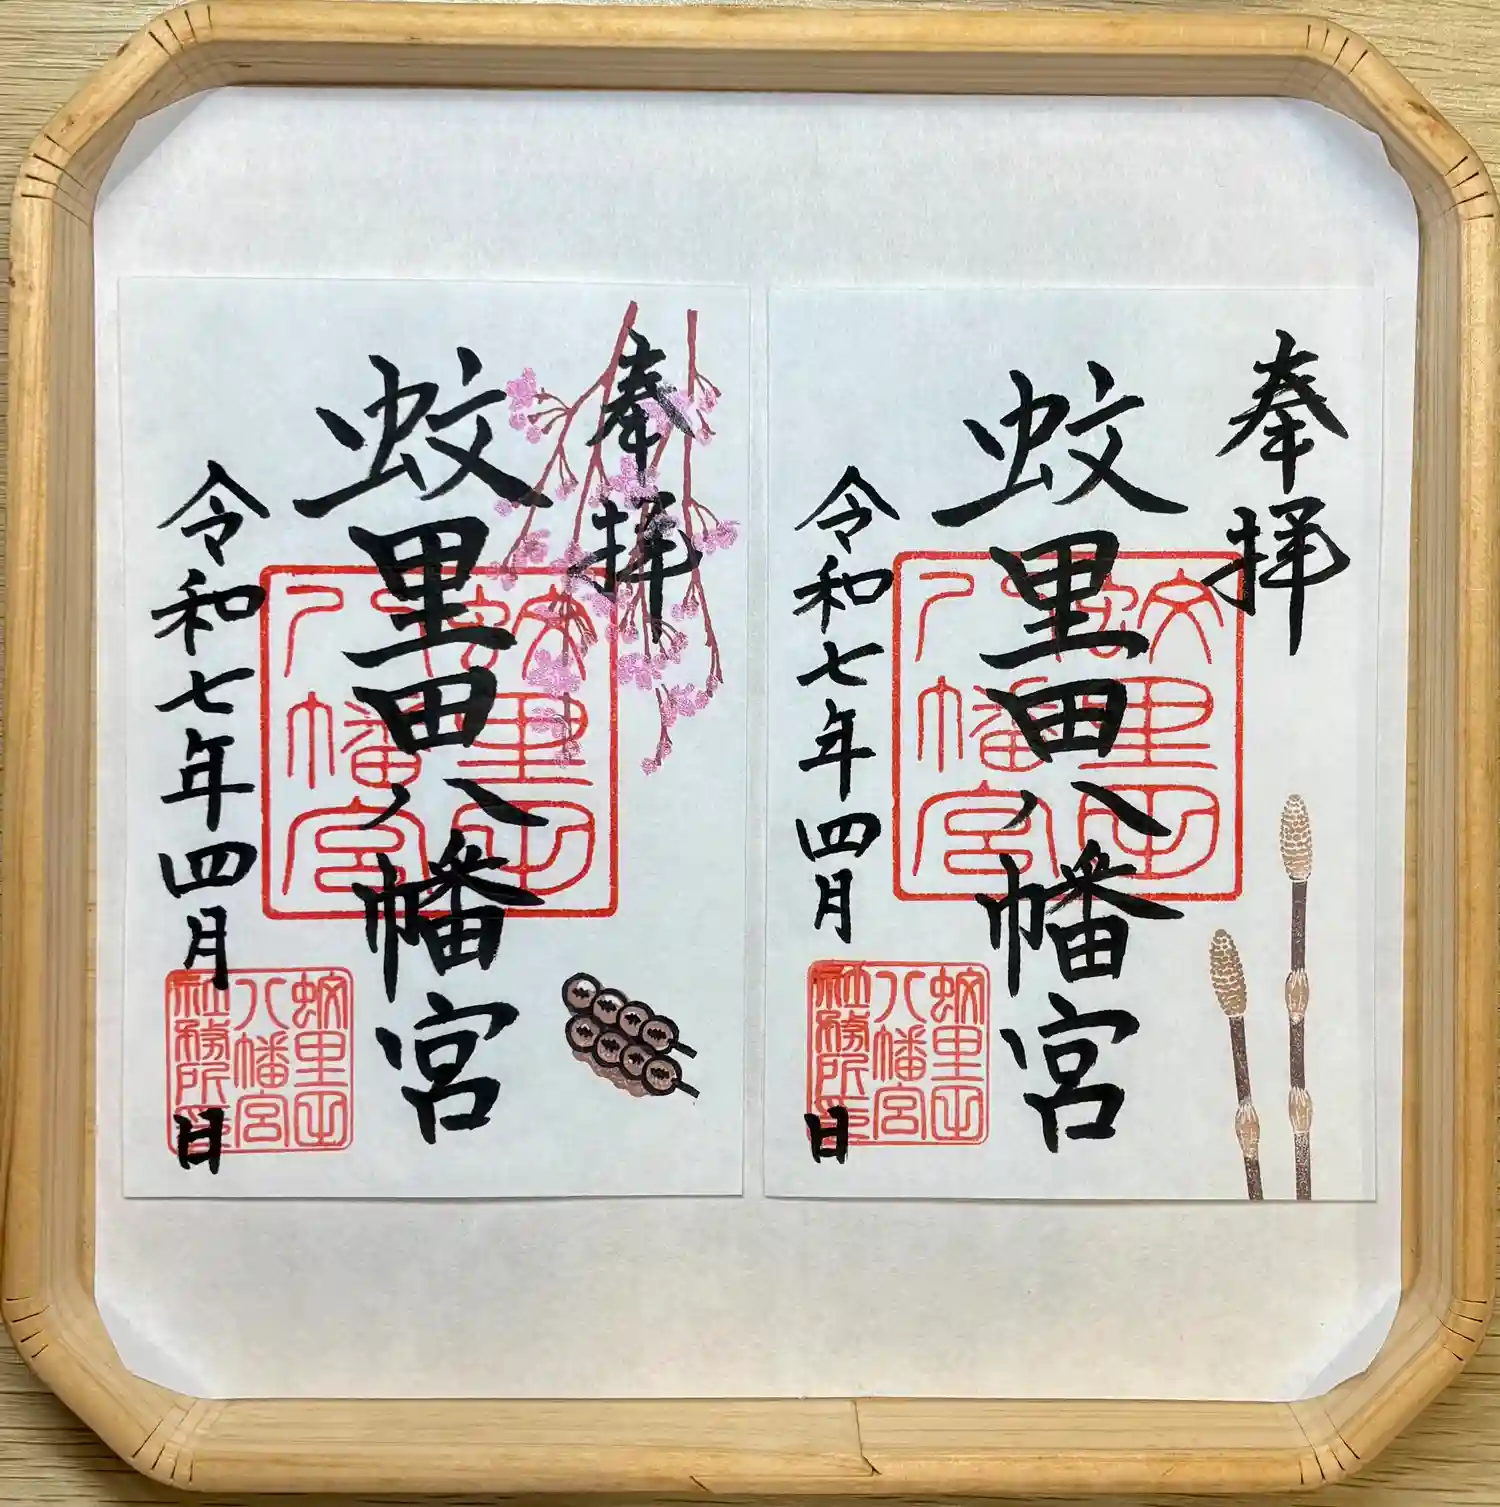 奉拝
蛟里田八幡宮
令和七年四月 日
蛟里田
八幡宮
蛟里田
八幡宮
社務所印
奉拝
蛟里田八幡宮
令和七年四月 日
蛟里田
八幡宮
蛟里田
八幡宮
社務所印